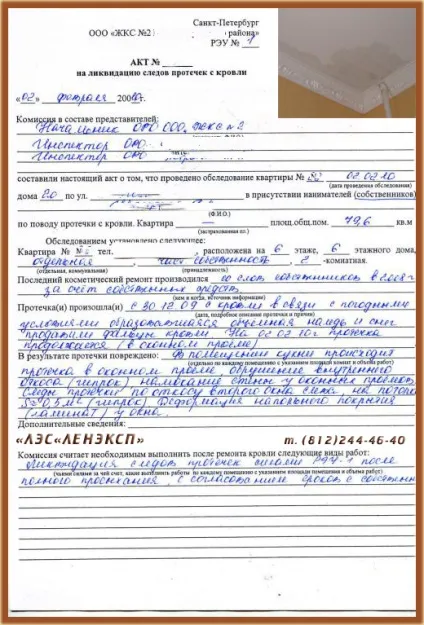 Санкт-Петербург
ООО «ЖКС №2» района»
РЭУ № 1
АКТ №
на ликвидацию следов протечек с кровли
«02» февраля 2010г.
Комиссия в составе представителей:
Начальник ОРО ООО ЖКС №2
Инспектор ОРО
Инспектор ОРО
(Ф.И.О.)
составили настоящий акт о том, что проведено обследование квартиры № 02.02.10
(дата проведения обследования)
дома 20 по ул. в присутствии нанимателей (собственников)
(Ф.И.О.)
по поводу протечки с кровли. Квартира — площ.общ.пом. 79,6 кв.м
Обследованием установлено следующее:
Квартира № тел. , расположена на 6 этаже, 6 этажного дома,
отдельная, част. собственность, 2 -комнатная.
(отдельная, коммунальная) (принадлежность)
Последний косметический ремонт производился со слов собственников в
за счёт собственных средств
(кем и когда, источник информации)
Протечка(и) произошла(и) с 30.12.09 с кровли в связи с погодными
(дата, подробное описание протечки и причин)
условиями образовавшаяся объемная наледь и снег
продавили фальцы кровли. На 02.02.10г протечка
продолжается в оконном проёме)
В результате протечки повреждено: В помещении кухни происходит
(отдельно по каждому помещению с указанием площади комнат и объема работ)
протечка в оконном проёме, обрушение внутреннего
откоса (гипрок) намокание стены у оконных проёмов
след протечки по откосу второго окна слева, на потолке
(гипрок) Деформация напольного покрытия
(ламинат) у окна.
Дополнительные сведения:
«ЛЭС«ЛЕНЭКСП» т. (812)244-46-40
Комиссия считает необходимым выполнить после ремонта кровли следующие виды работ:
Ликвидация следов протечек силами РЭУ-1 после
(чьими силами за чей счет, какие выполнить работы по каждому помещению с указанием площади помещения и объема работ)
полного просыхания, с согласованием сроков с собствен